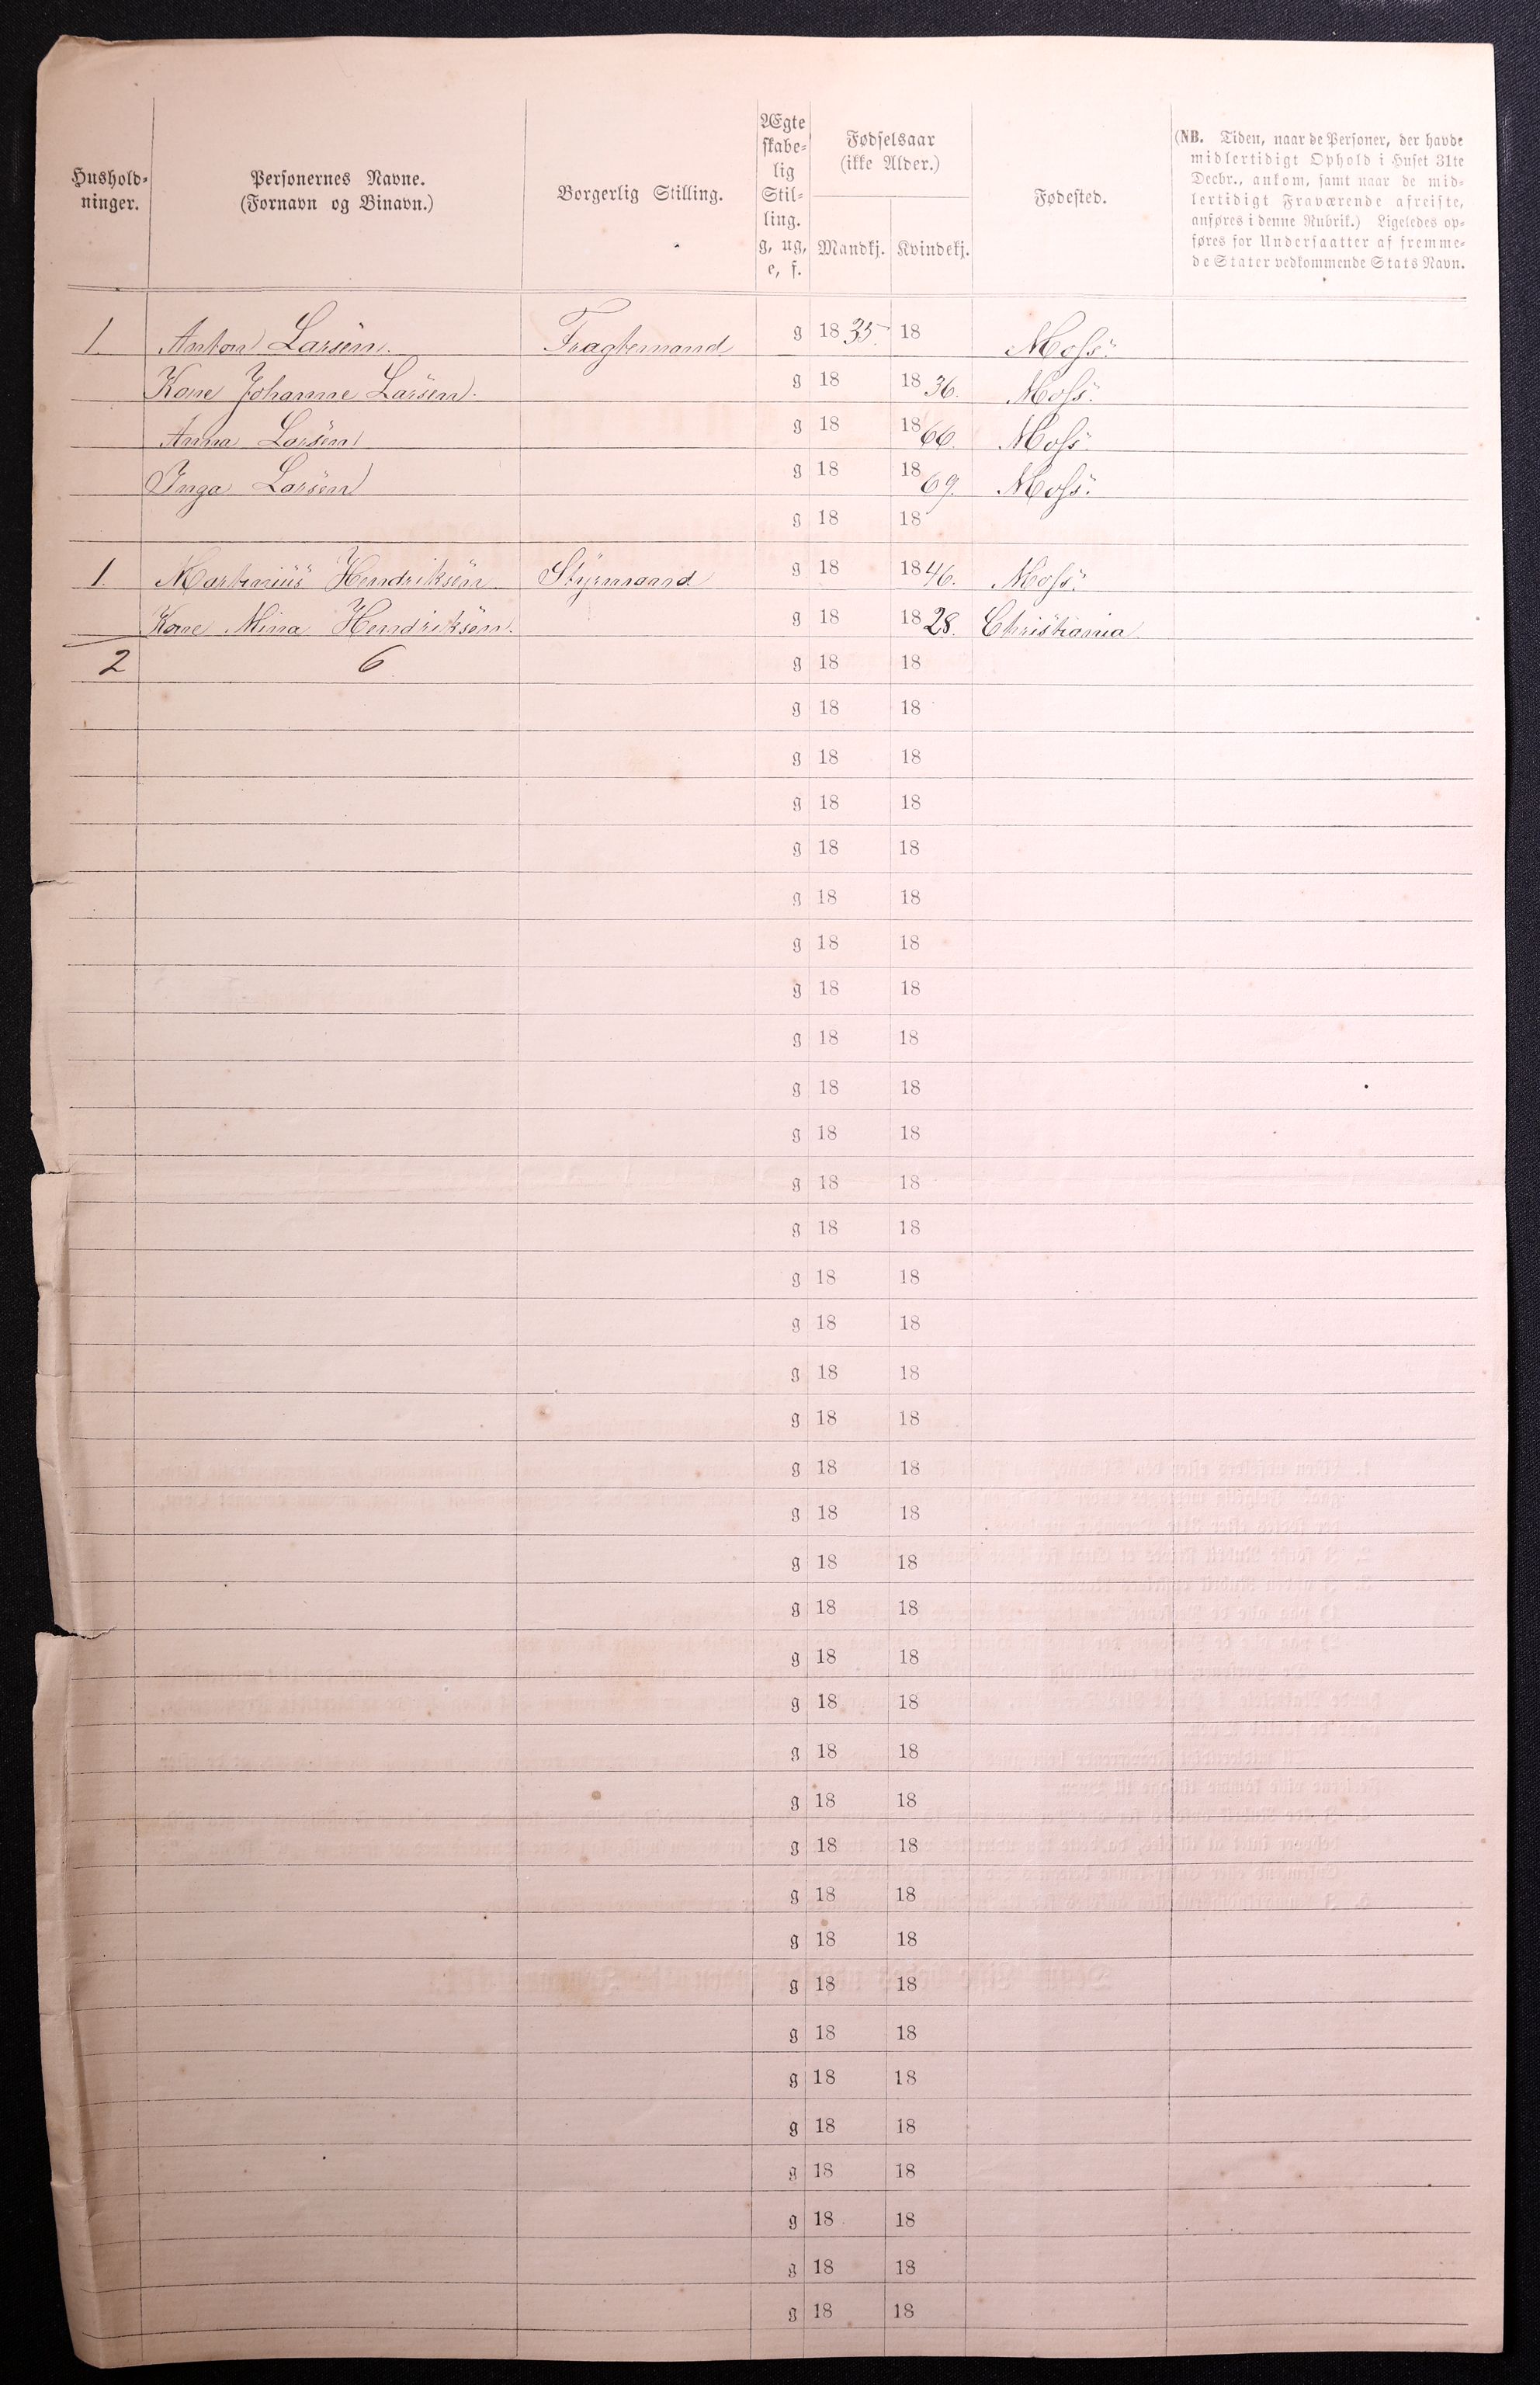 Hushold-
ninger.
Personernes Navne.
(Fornavn og Binavn.)
Borgerlig Stilling.
Ægte
skabe-
lig
Stil-
ling.
g, ug,
e, f.
Fødselsaar
(ikke Alder.)
Mandkj. Kvindekj.
Fødested.
(NB. Tiden, naar de Personer, der havde
midlertidigt Ophold i Huset 31te
Decbr., ankom, samt naar de mid-
lertidigt Fraværende afreiste,
anføres i denne Rubrik.) Ligeledes op-
føres for Undersaatter af fremme-
de Stater vedkommende Stats Navn.
1. Anton Larsen. Fragtemand g 1835. 18 Moss.
Kone Johanne Larsen. g 18 1836. Moss.
Anna Larsen g 18 1866. Moss.
Inga Larsen g 18 1869. Moss.
g 18 18
1. Martinius Hendriksen Styrmand g 18 1846. Moss.
Kone Mina Hendriksen. g 18 1828. Christiania
2 6 g 18 18
g 18 18
g 18 18
g 18 18
g 18 18
g 18 18
g 18 18
g 18 18
g 18 18
g 18 18
g 18 18
g 18 18
g 18 18
g 18 18
g 18 18
g 18 18
g 18 18
g 18 18
g 18 18
g 18 18
g 18 18
g 18 18
g 18 18
g 18 18
g 18 18
g 18 18
g 18 18
g 18 18
g 18 18
g 18 18
g 18 18
g 18 18
g 18 18
g 18 18
g 18 18
g 18 18